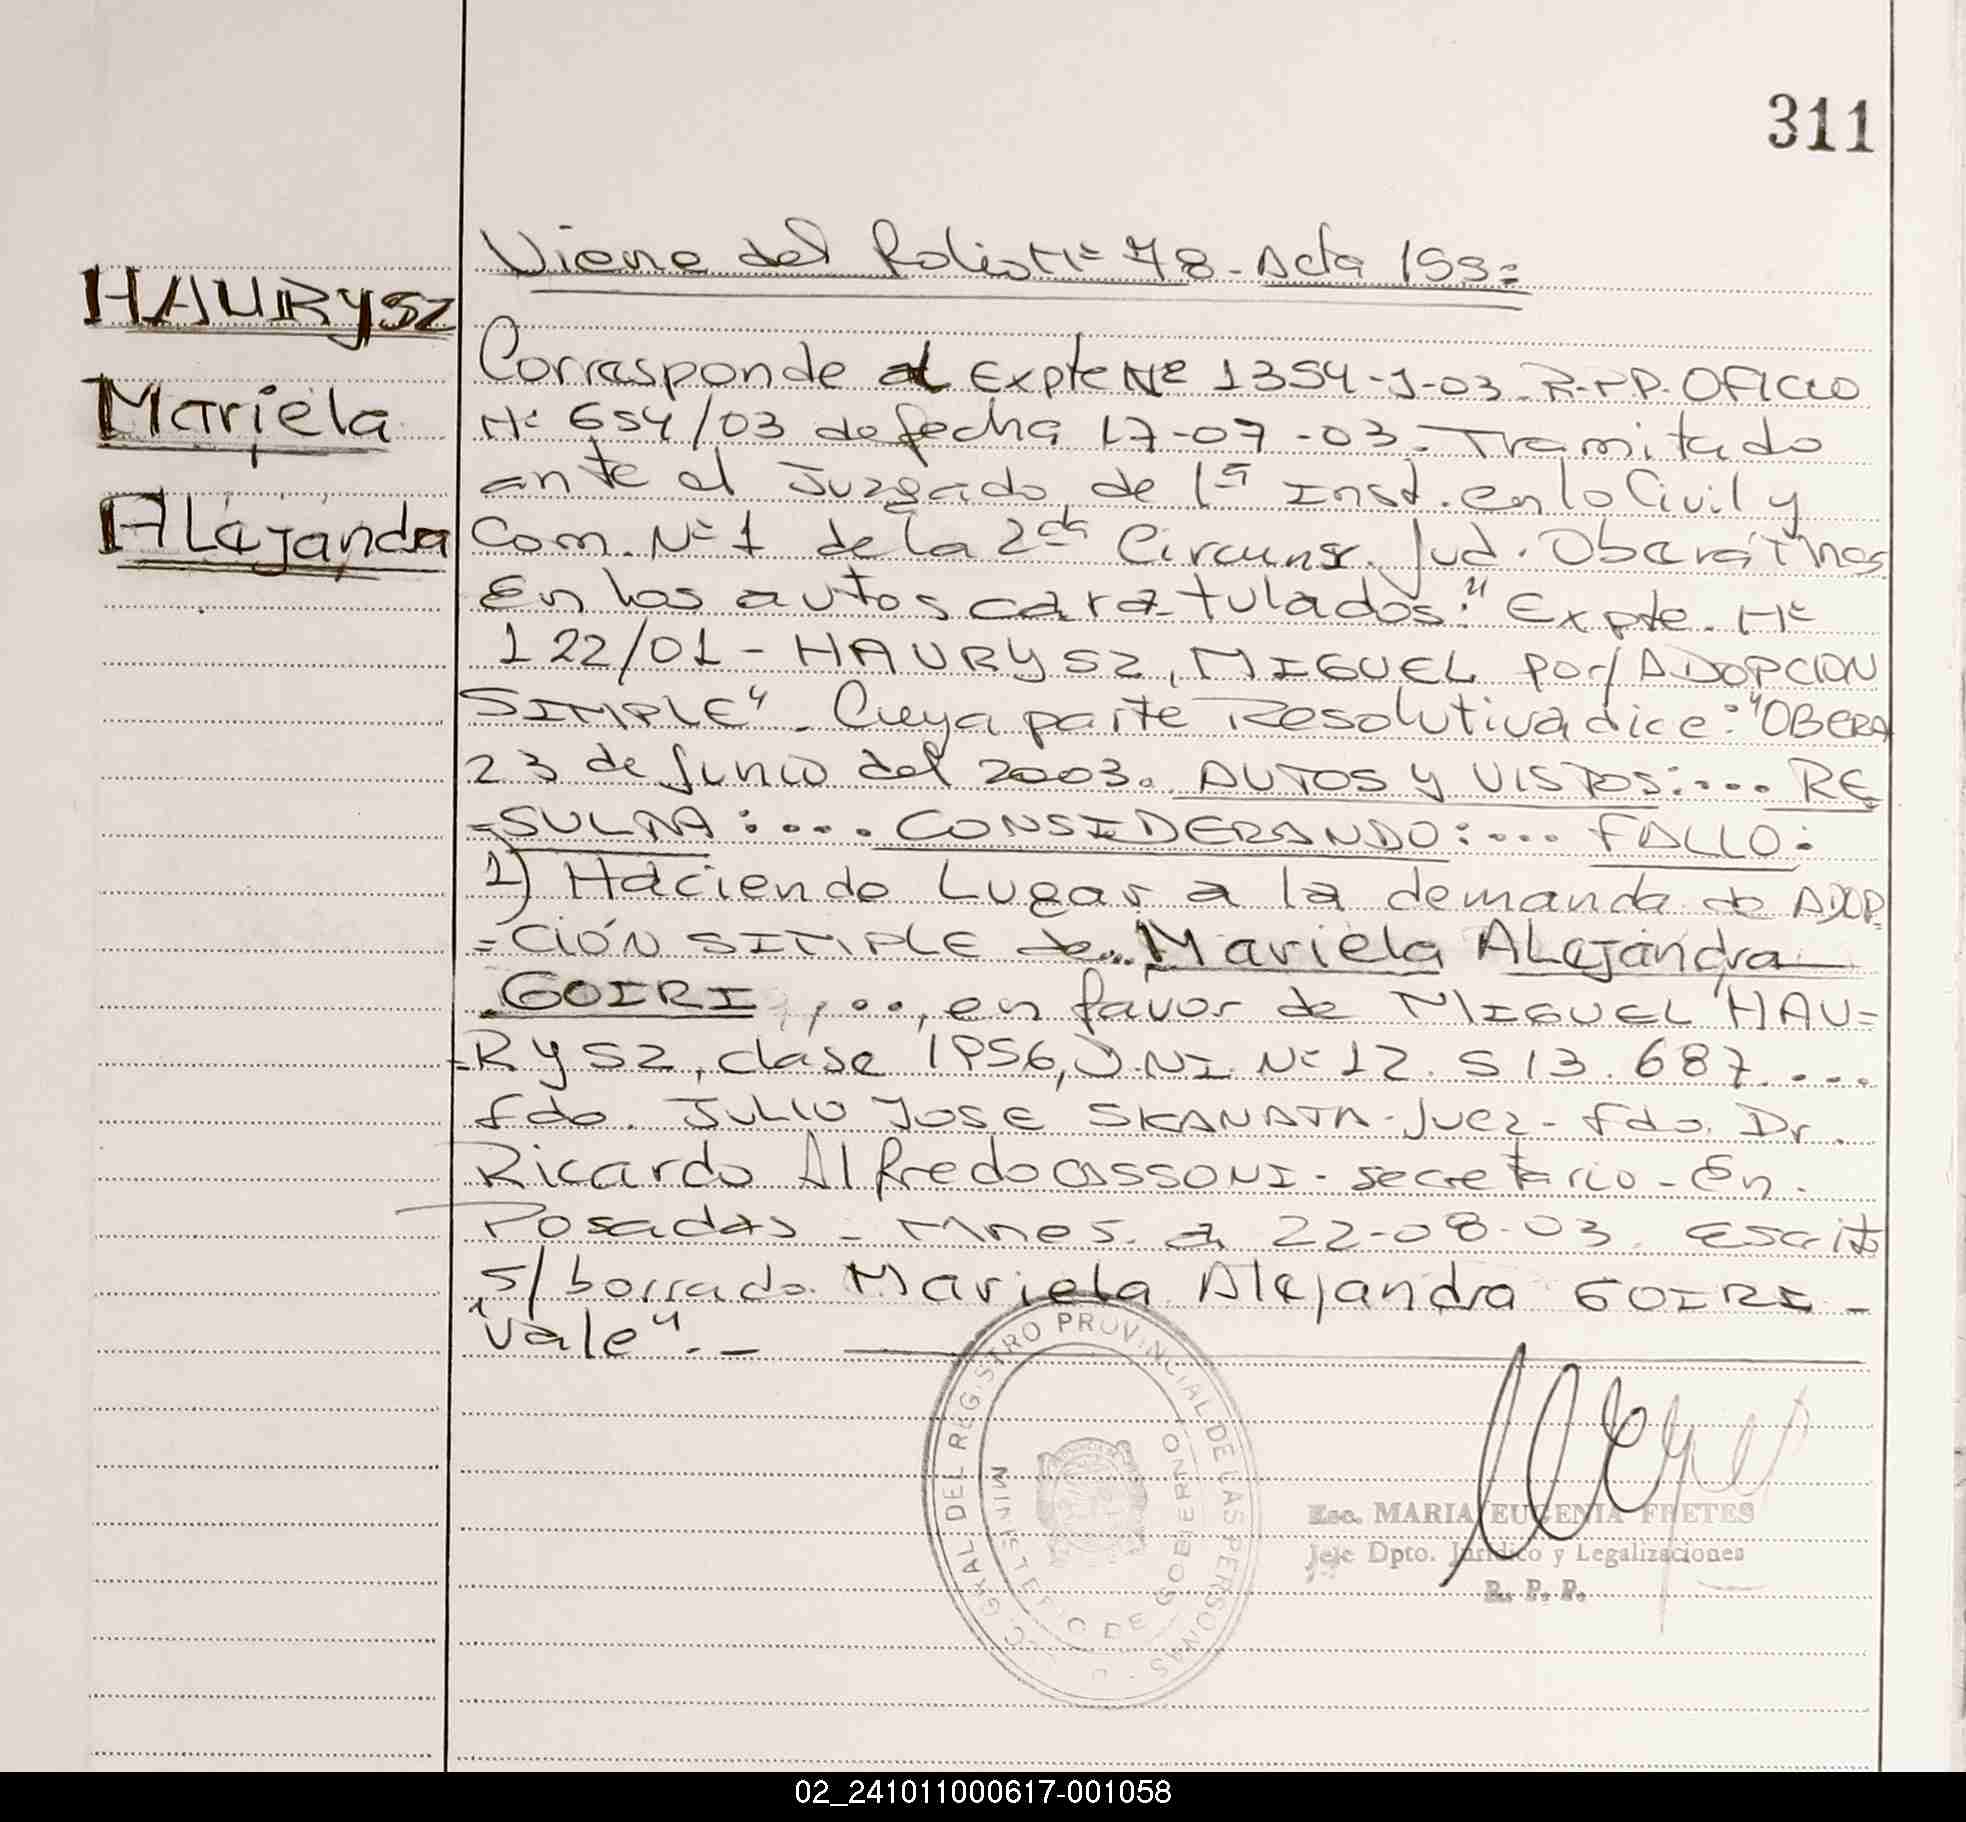 311
Viene del Folio Nº 78 - Acta 155=
HAURYSZ
Mariela
Alejandra
Corresponde al Expte Nº 1354-J-03. R.P.P. OFICIO
Nº 654/03 de fecha 17-07-03. Tramitado
ante el Juzgado de 1ª Inst. en lo Civil y
Com. Nº 1 de la 2da Circuns. Jud. Oberá Mnes
En los autos caratulados: "Expte. Nº
122/01 - HAURYSZ, MIGUEL por/ADOPCION
SIMPLE". Cuya parte Resolutiva dice: "OBERA
23 de Junio del 2003. AUTOS Y VISTOS:.... RE
=SULTA:.... CONSIDERANDO:.... FALLO:
1) Haciendo Lugar a la demanda de ADOP
=CIÓN SIMPLE de... Mariela Alejandra
GOIRI ,..., en favor de MIGUEL HAU=
=RYSZ, clase 1956, D.N.I. Nº 12.513.687....
fdo. JULIO JOSE SKANATA - Juez - fdo. Dr.
Ricardo Alfredo CASSONI - secretario - En
Posadas - Mnes. a 22-08-03. Escrito
s/borrado Mariela Alejandra GOIRI -
"Vale". -
C. GRAL DEL REGISTRO PROVINCIAL DE LAS PERSONAS
MINISTERIO DE GOBIERNO
Esc. MARIA EUGENIA FRETES
Jefe Dpto. Jurídico y Legalizaciones
R. P. P.
02_241011000617-001058